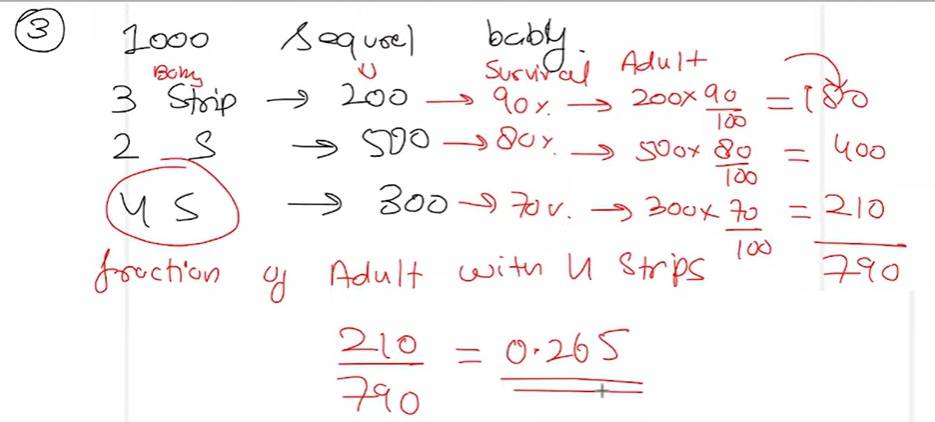 3 1000 Sequrel baby
Baby Survival Adult
3 Strip → 200 → 90%. → 200 × 90/100 = 180
2 S → 500 → 80%. → 500 × 80/100 = 400
4 S → 300 → 70%. → 300 × 70/100 = 210
fraction of Adult with 4 Strips 790
210/790 = 0.265